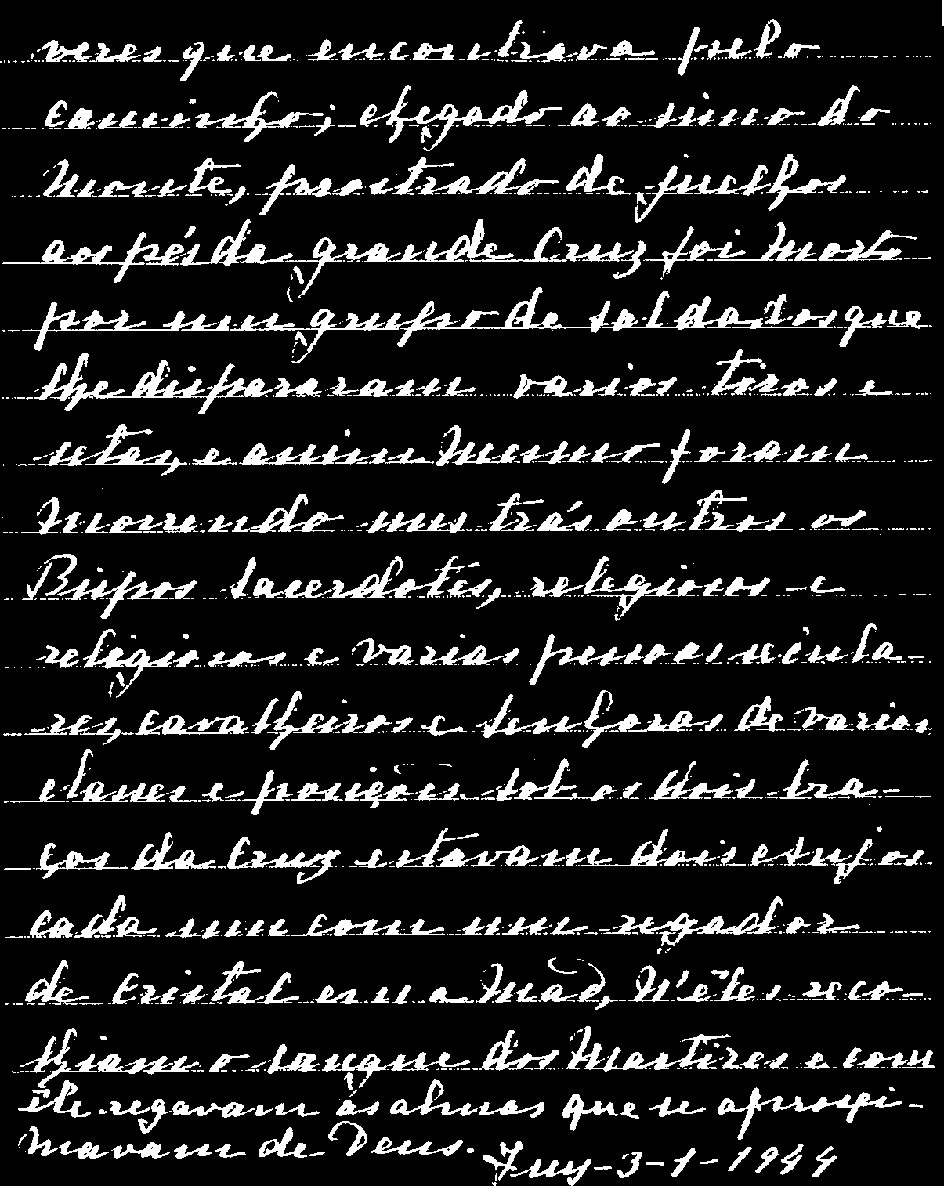 veres que encontrava pelo
caminho; chegado ao simo do
monte, prostrado de juelhos
aos pés da grande Cruz foi morto
por um grupo de soldados que
lhe dispararam varios tiros e
setas, e assim mesmo foram
morrendo uns trás outros os
Bispos Sacerdotes, religiosos e
religiosas e varias pessoas secula-
res, cavalheiros e senhoras de varias
classes e posições. Sob os dois bra-
ços da Cruz estavam dois Anjos
cada um com um regador
de cristal em a mão, N'êles reco-
lhiam o sangue dos Martires e com
êle regavam as almas que se aproxi-
mavam de Deus. Tuy-3-1-1944